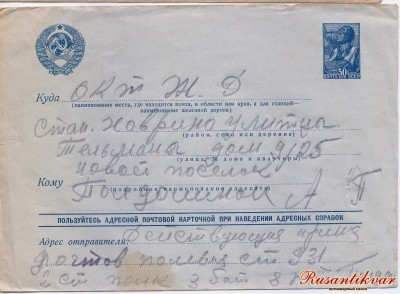 ПОЧТА СССР
50
Куда Окт Ж. Д
(наименование места, где находится почта, и области или края, а для станций—
наименование железной дороги)
Стан. Ховрино Улитцы
(район, село или деревня)
Тельмана дом 9/25
(улица, № дома и квартиры)
новый поселок
Кому А П
(подробное наименование адресата)
ПОЛЬЗУЙТЕСЬ АДРЕСНОЙ ПОЧТОВОЙ КАРТОЧКОЙ ПРИ НАВЕДЕНИИ АДРЕСНЫХ СПРАВОК
Адрес отправителя: Действующая
полевая 931
2 полк 3 бат 8
Rusantikvar